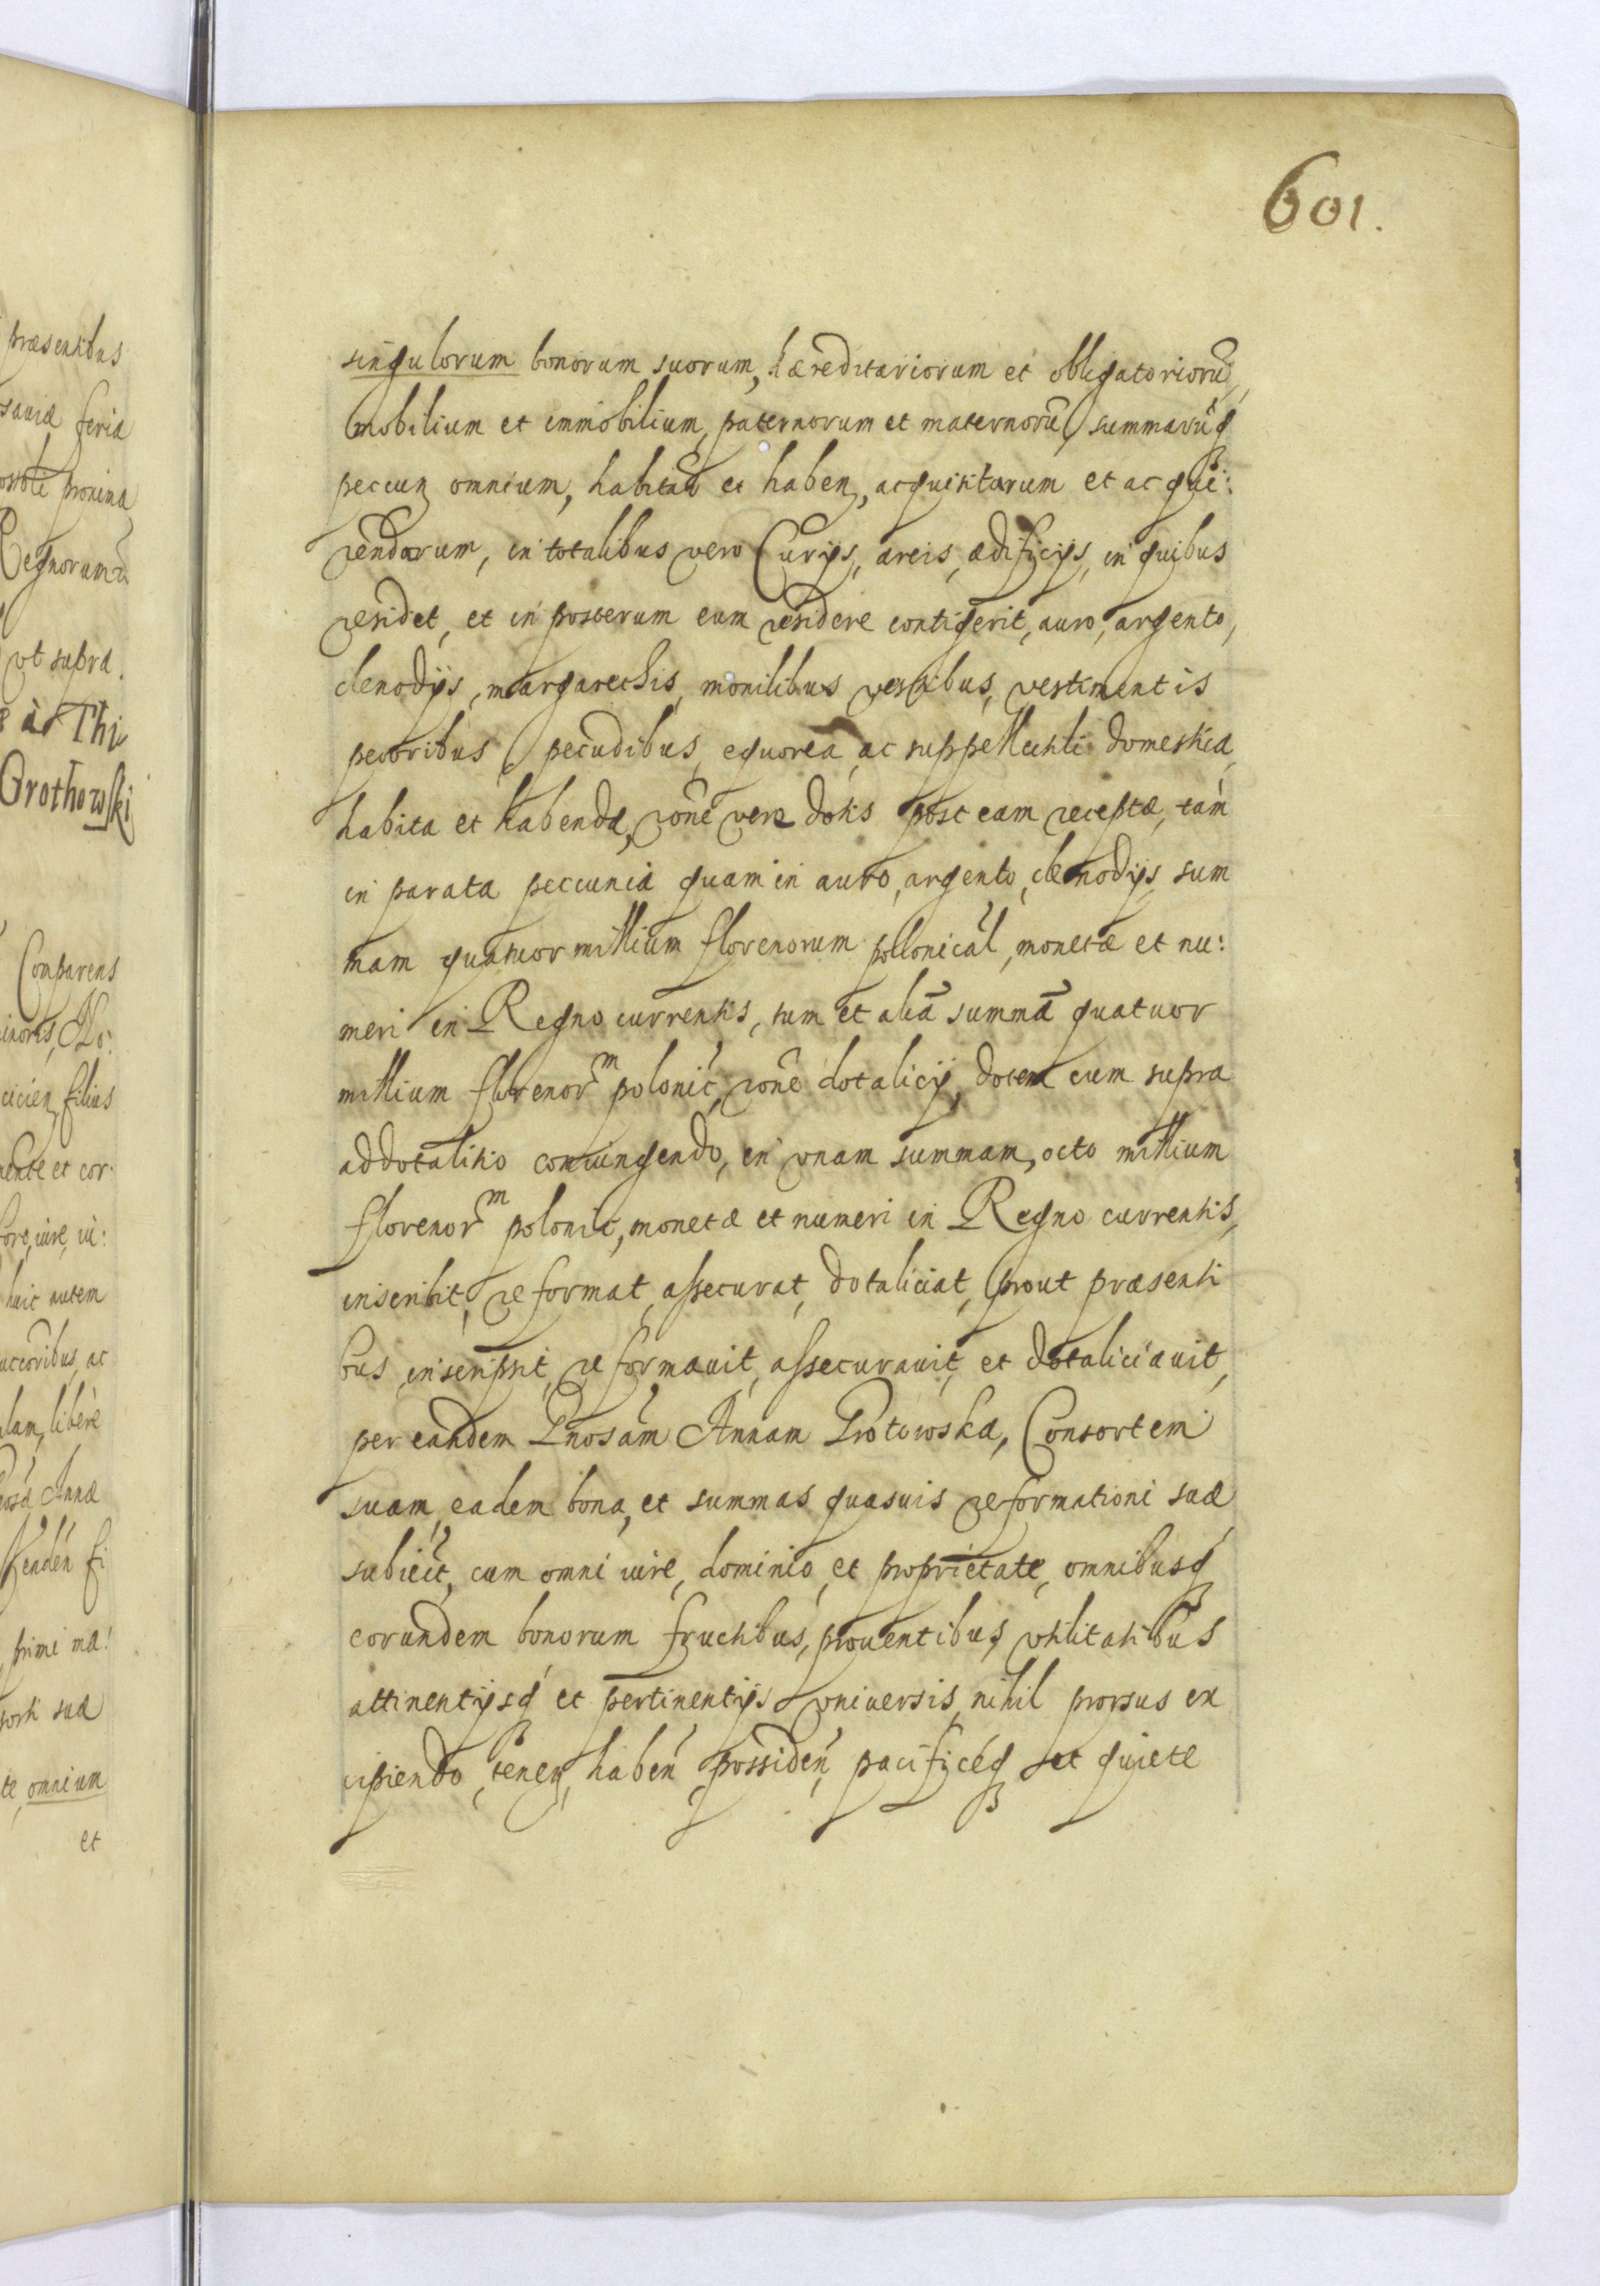 præsentibus
saviæ feria
proxima
Regnorum
vt supra.
Grothowski
Comparens
filius
et cor:
huic autem
ac
libere
Annæ
primi ma:
suæ
te, omnium
et
601.
singulorum bonorum suorum, hæreditariorum et obligatoriorũ,
mobilium et immobilium, paternorum et maternorũ, summarũq3
peccun omnium, habitar et haben, acquisitarum et acqui:
rendarum, in totalibus vero Curijs, areis, ædificijs, in quibus
residet, et in posterum eum residere contigerit, auro, argento,
clenodijs, margarethis, monilibus vestibus, vestimentis
pecoribus, pecudibus, equorea, ac suppellectili domestica,
habita et habenda, rõne vero dotis post eam receptæ, tam
in parata peccunia quam in auro, argento, clenodijs sum
mam quatuor millium florenorum pollonical, monetæ et nu:
meri in Regno currentis, tum et aliã summã quatuor
millium florenorm polonic, rõne dotalicij, dotem cum supra
addotalitio coniungendo, in vnam summam, octo millium
florenorm polonic, monetæ et numeri in Regno currentis,
inscribit, reformat, assecurat, dotaliciat, prout præsenti
bus inscripsit, reformauit, assecurauit, et dotaliciauit,
per eandem Gnosam Annam Grotowska, Consortem
suam, eadem bona, et summas quasuis reformationi suæ
subiecit, cum omni iure, dominio, et proprietate, omnibusq3
eorundem bonorum fructibus, prouentibus, vtilitatibus
attinentijsq3 et pertinentijs vniuersis, nihil prorsus ex
cipiendo, tenen, haben, possiden, pacificeq3 et quiete